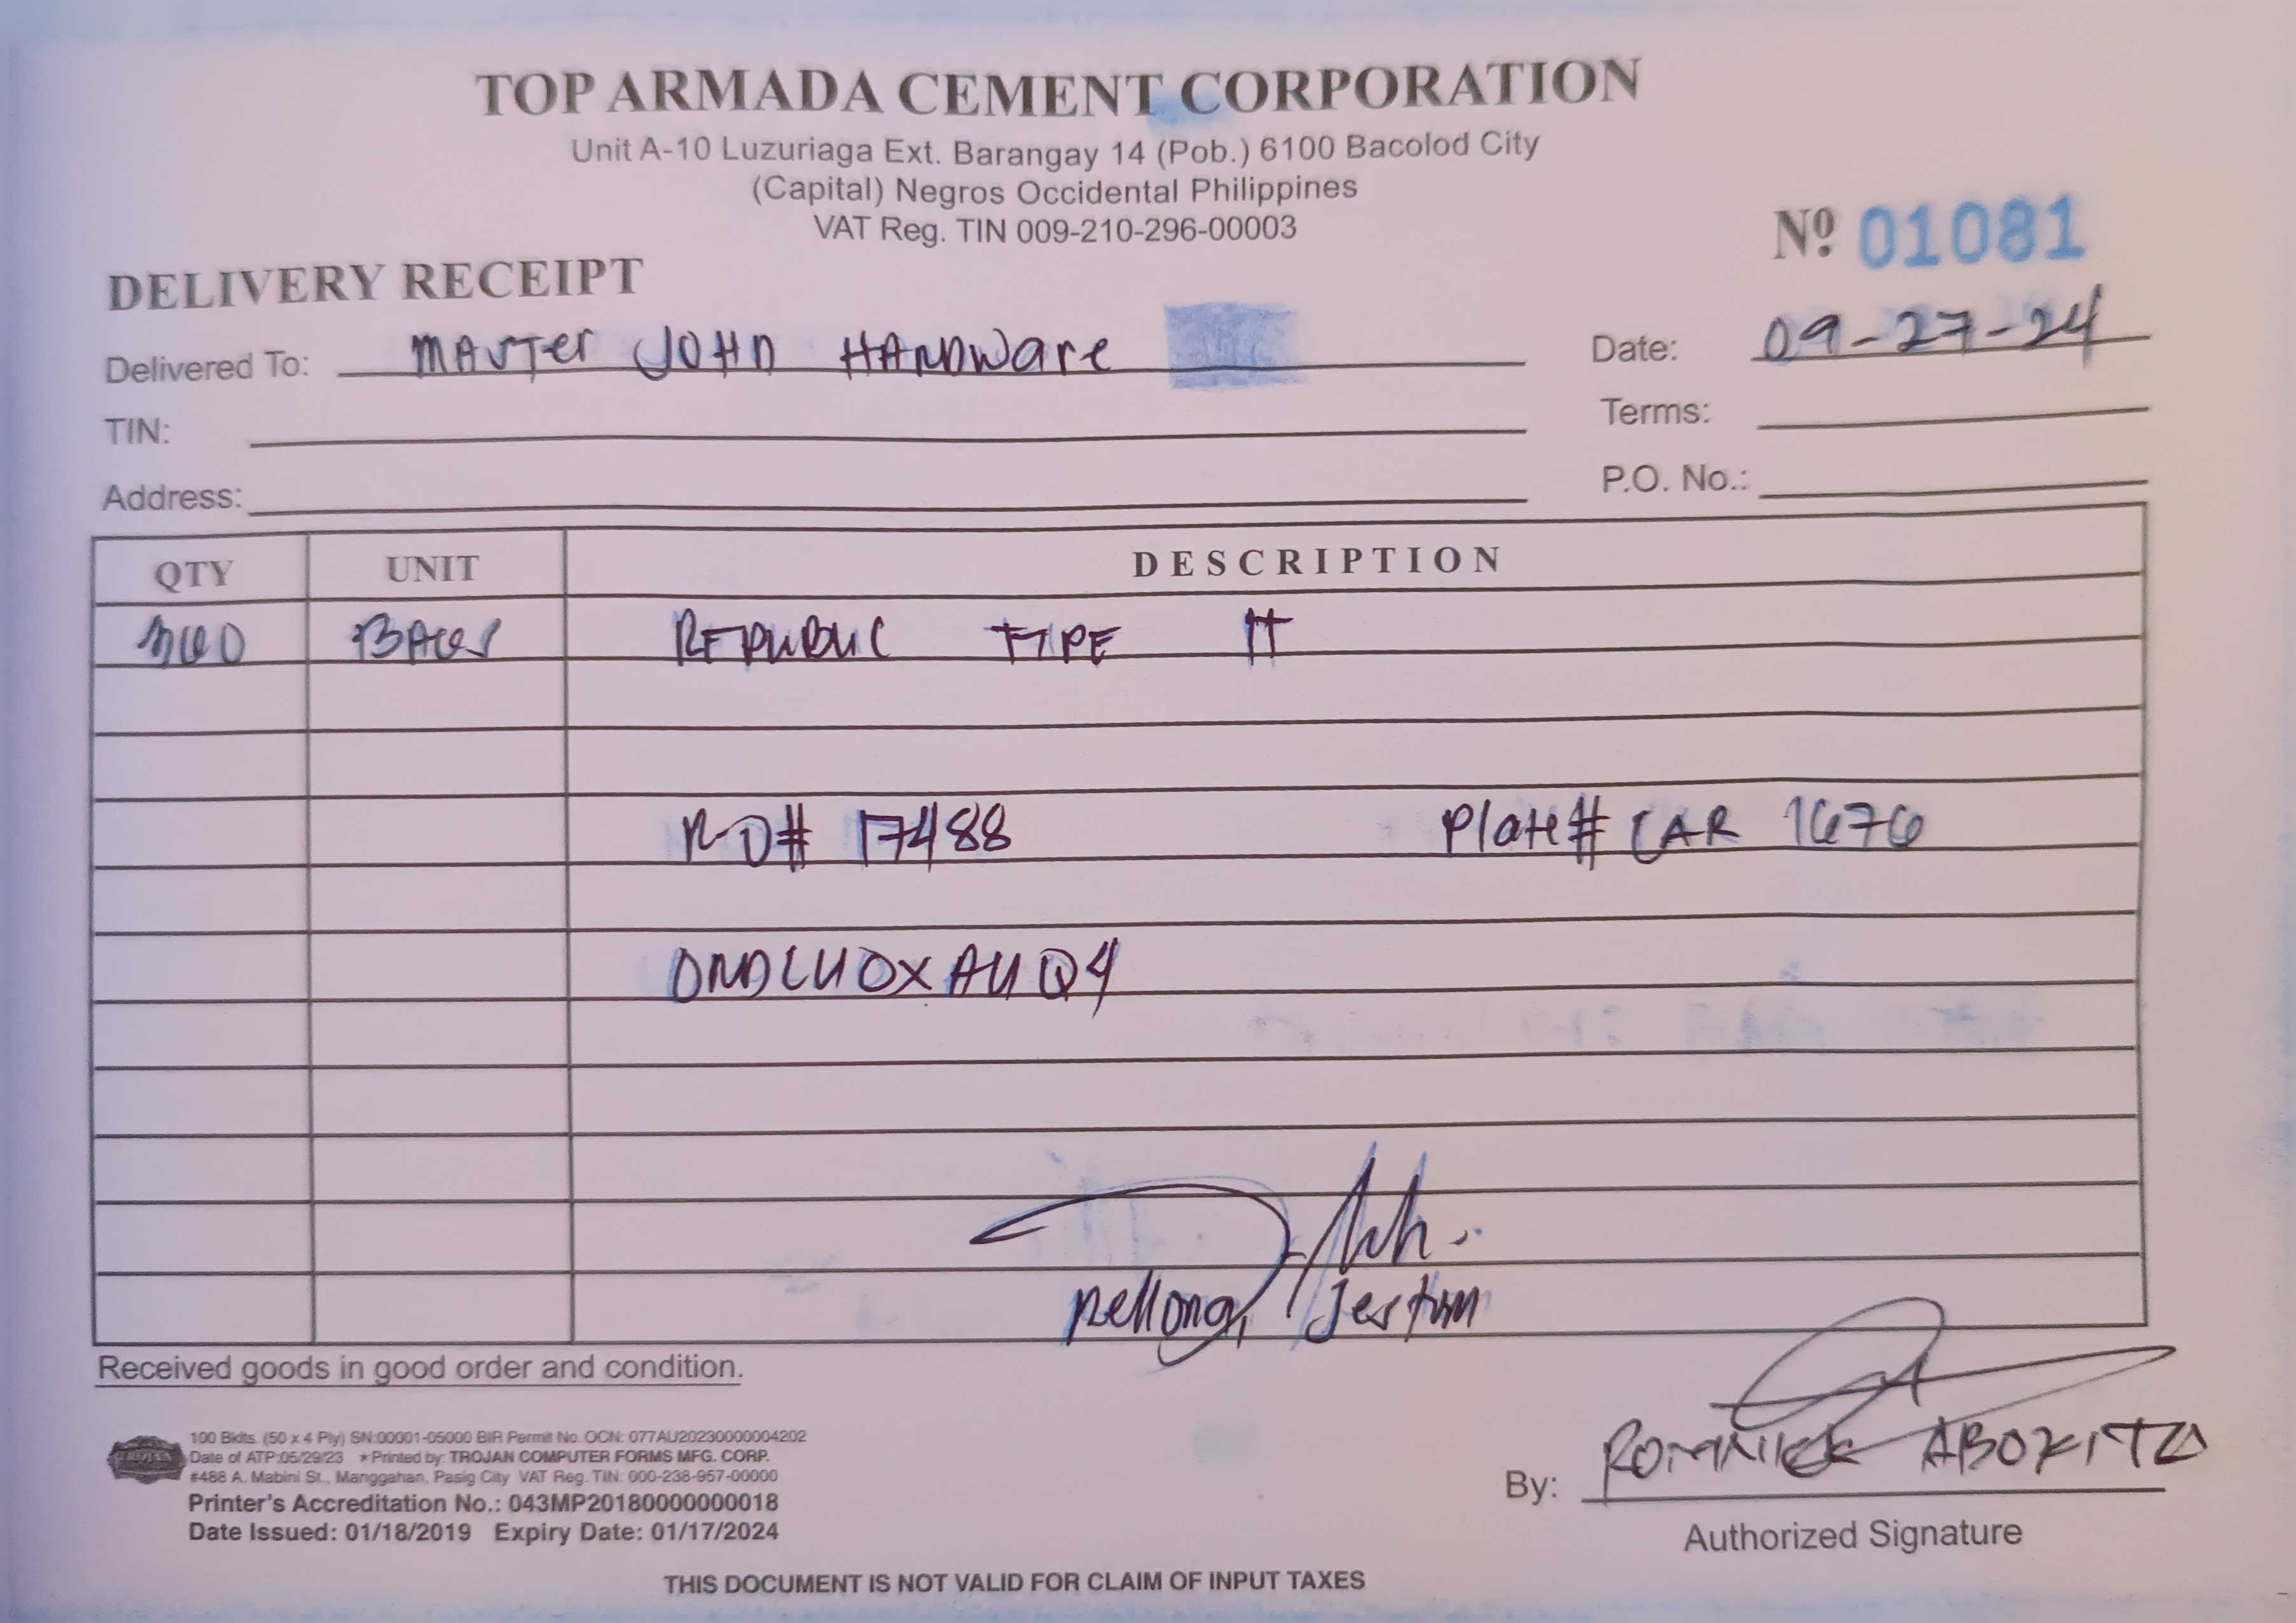 TOP ARMADA CEMENT CORPORATION
Unit A-10 Luzuriaga Ext. Barangay 14 (Pob.) 6100 Bacolod City
(Capital) Negros Occidental Philippines
VAT Reg. TIN 009-210-296-00003
Nº 01081
DELIVERY RECEIPT
Delivered To: MASTER JOHN HARDWARE
Date: 09-27-24
TIN:
Terms:
Address:
P.O. No.:
QTY UNIT DESCRIPTION
BAGS REPUBLIC TYPE
17488 Plate# CAR 1676
Received goods in good order and condition.
100 Bklts. (50 x 4 Ply) SN:00001-05000 BIR Permit No. OCN: 077AU20230000004202
Date of ATP:05/29/23 *Printed by: TROJAN COMPUTER FORMS MFG. CORP.
#488 A. Mabini St., Manggahan, Pasig City VAT Reg. TIN: 000-238-957-00000
Printer's Accreditation No.: 043MP20180000000018
Date Issued: 01/18/2019 Expiry Date: 01/17/2024
By:
Authorized Signature
THIS DOCUMENT IS NOT VALID FOR CLAIM OF INPUT TAXES